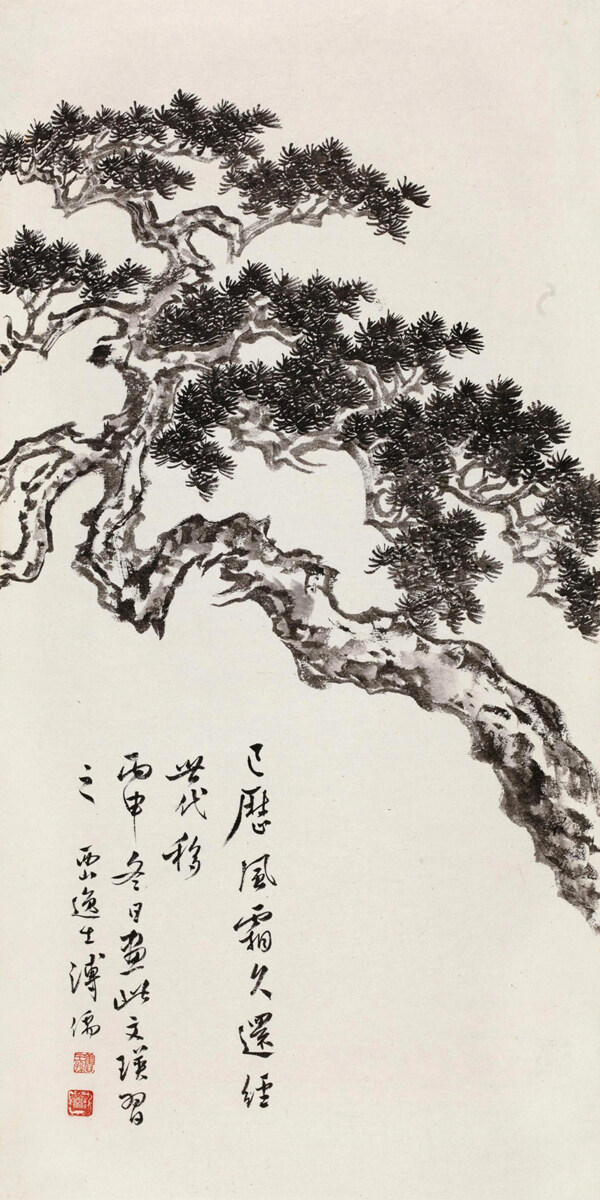 已歷風霜久還經
世代移
丙申冬日畫此文瑛習
之 西山逸士溥儒